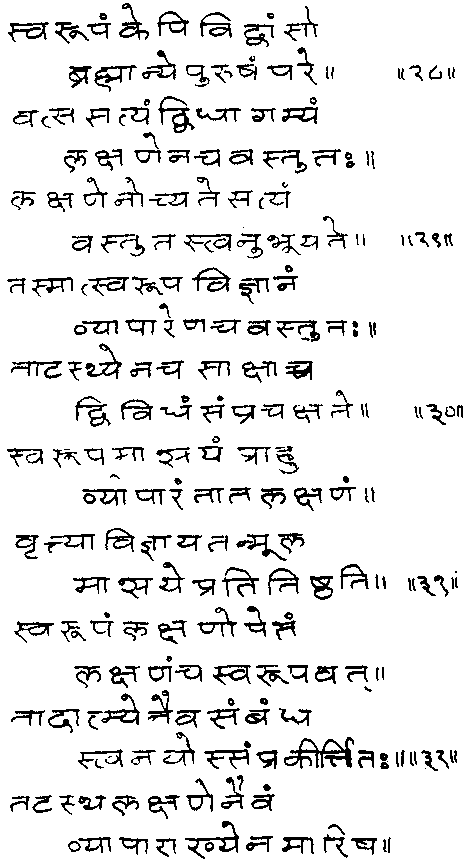 स्वरूपं केपि विद्वांसो
ब्रह्मान्ये पुरुषं परे॥ ॥२८॥
वत्स सत्यं द्विधा गम्यं
लक्षणेन च वस्तुतः॥
लक्षणेनोच्यते सत्यं
वस्तुतस्त्वनुभूयते॥ ॥२९॥
तस्मात्स्वरूपविज्ञानं
व्यापारेण च वस्तुतः॥
ताटस्थ्येन च साक्षाच्च
द्विविधं संप्रचक्षते॥ ॥३०॥
स्वरूपमाश्रयं प्राहु
र्व्यापारं तात लक्षणं॥
वृत्त्या विज्ञाय तन्मूल
माश्रये प्रतितिष्ठति॥ ॥३१॥
स्वरूपं लक्षणोपेतं
लक्षणं च स्वरूपवत्॥
तादात्म्येनैव संबंध
स्त्वनयोस्संप्रकीर्त्तितः॥॥३२॥
तटस्थलक्षणेनैवं
व्यापाराख्येन मारिष॥